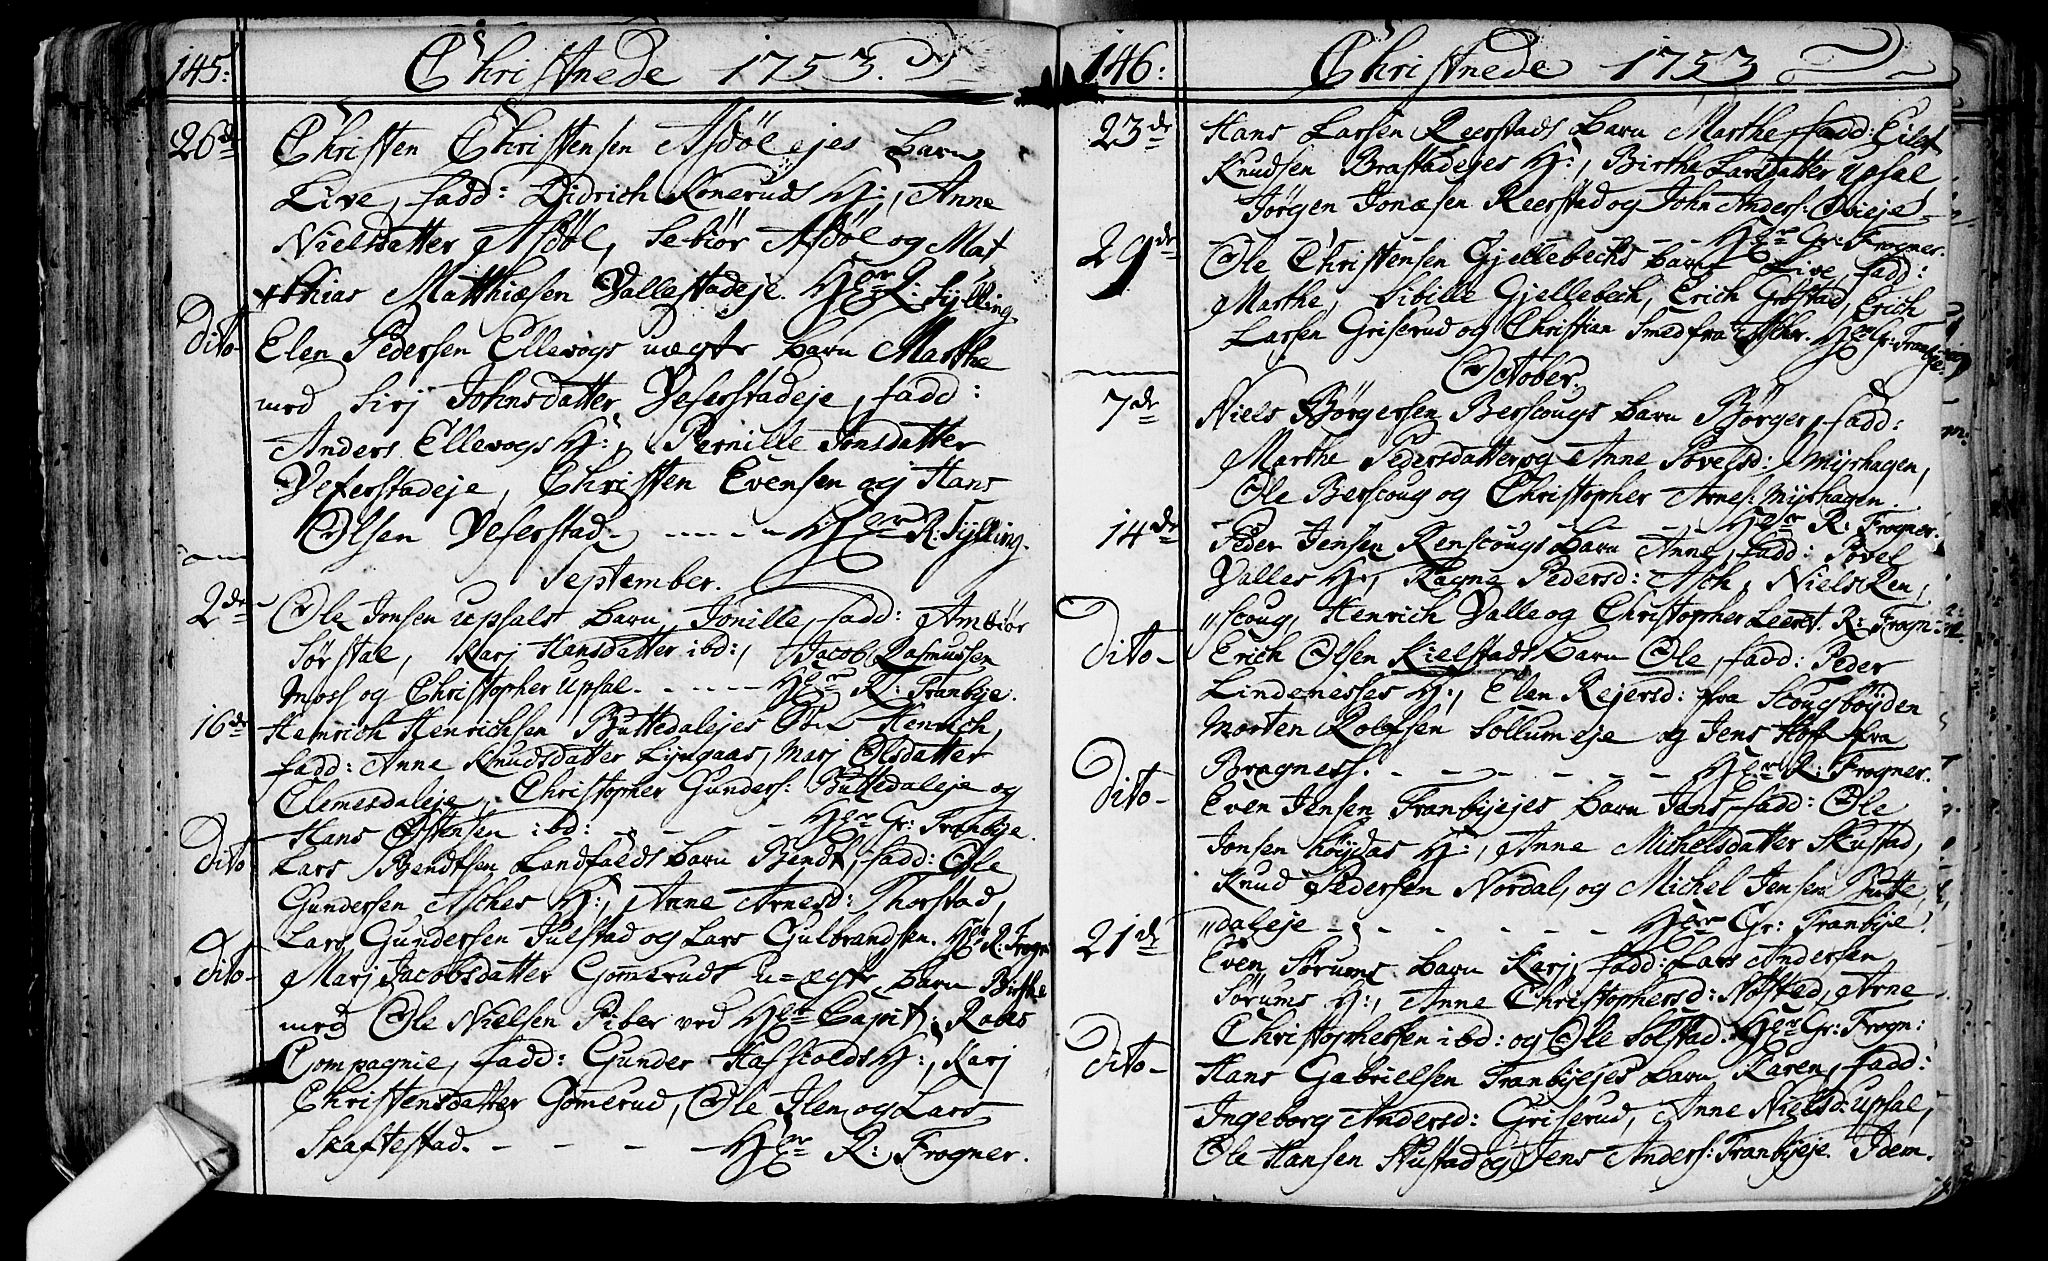 145:
Christnede 1753.
26de Christen Christensen Asdøl ejes barn
Live, fadd: Didrich Koneruds H:, Anne
Nielsdatter Asdøl, Sebiør Asdøl og Mat
thias Matthiæsen Vallestadeje. Hr R: Sylling.
Dito- Elen Pedersen Ellevogs uægte barn Marthe
med Sirj Johnsdatter Veferstadeje, fadd:
Anders Ellevogs H:, Pernille Jonsdatter
Veferstadeje, Christen Evensen og Hans
Olsen Veferstad. - - - - - Hr R: Sylling.
September.
2de Ole Jensen Upsals barn Jonille, fadd: Ambiør
Sørstal, Karj Hansdatter ibd:, Jacob Rasmussen
Moss og Christopher Upsal. - - - - - Hr R: Tranbye.
16de Henrich Henrichsen Buttedalejes Bn Henrich,
fadd: Anne Knudsdatter Lyngaas, Marj Olsdatter
Clemesdaleje, Christopher Gunders: Buttedaleje og
Hans Østensen ibd: - - - Hr Gr: Tranbye.
Dito Lars Bendtsen Landfalds barn Bendt, fadd: Ole
Gundersen Asches H:, Anne Arnesd: Thorstad,
Lars Gundersen Julstad og Lars Gulbrandsen. Hr R: Frogn
Dito- Marj Jacobsdatter Gomeruds u=ægte barn Birthe
med Ole Nielsen Piber ved Hr Capit: Rabes
Compagnie, fadd: Gunder Haffsolds H:, Karj
Christensdatter Gomerud, Ole Jlen og Lars
Skaftestad. - - - - - Hr R: Frogner.
146:
Christnede 1753
23de Hans Larsen Reerstads barn Marthe, fadd: Eilef
Knudsen Brastadejes H:, Birthe Larsdatter Upsal,
Jørgen Jonæsen Reerstad og John Anders: Ovieje
- - - Hr Gr: Frogner.
29de Ole Christensen Gjellebechs barn Live, fadd:
Marthe, Sibille Gjellebech, Erich Gifstad, Erich
Larsen Griserud og Christian Smed fra Ascher. Hr Gr: Tranbye.
October.
7de Niels Børgersen Berscougs barn Børger, fadd:
Marthe Pedersdatter og Anne Povelsd: Myrhagen,
Ole Berscoug og Christopher Arnes: Myrhagen.
- Hr R: Frogner.
14de Peder Jensen Renscougs barn Anne, fadd: Povel
Valles H:, Ragne Pedersd: Ash, Niels Ren,
"scoug, Henrich Valle og Christopher Leerst. R: Frogn:
Dito- Erich Olsen Kielstads barn Ole, fadd: Peder
Lindenesses H:, Elen Rejersd: fra Scougsbøyden
Morten Rolfsen Sollumeje og Jens Hof fra
Bragness. - - - - - - Hr R: Frogner.
Dito- Even Jensen Tranbyejes barn Jens, fadd: Ole
Jonsen Høydas H:, Anne Michelsdatter Skustad,
Knud Pedersen Nordal, og Michel Jensen Butte,
"daleje - - - - - - Hr Gr: Tranbye.
21de Even Sørums barn Karj, fadd: Lars Andersen
Sørums H:, Anne Christophersd: Nøsted, Arne
Christophersen ibd: og Ole Solstad. Hr Gr: Frogn:
Dito- Hans Gabrielsen Tranbyejes barn Karen, fadd:
Ingeborg Andersd: Griserud, Anne Nielsd: Upsal,
Ole Hansen Skustad og Jens Anders: Tranbyeje. Idem.